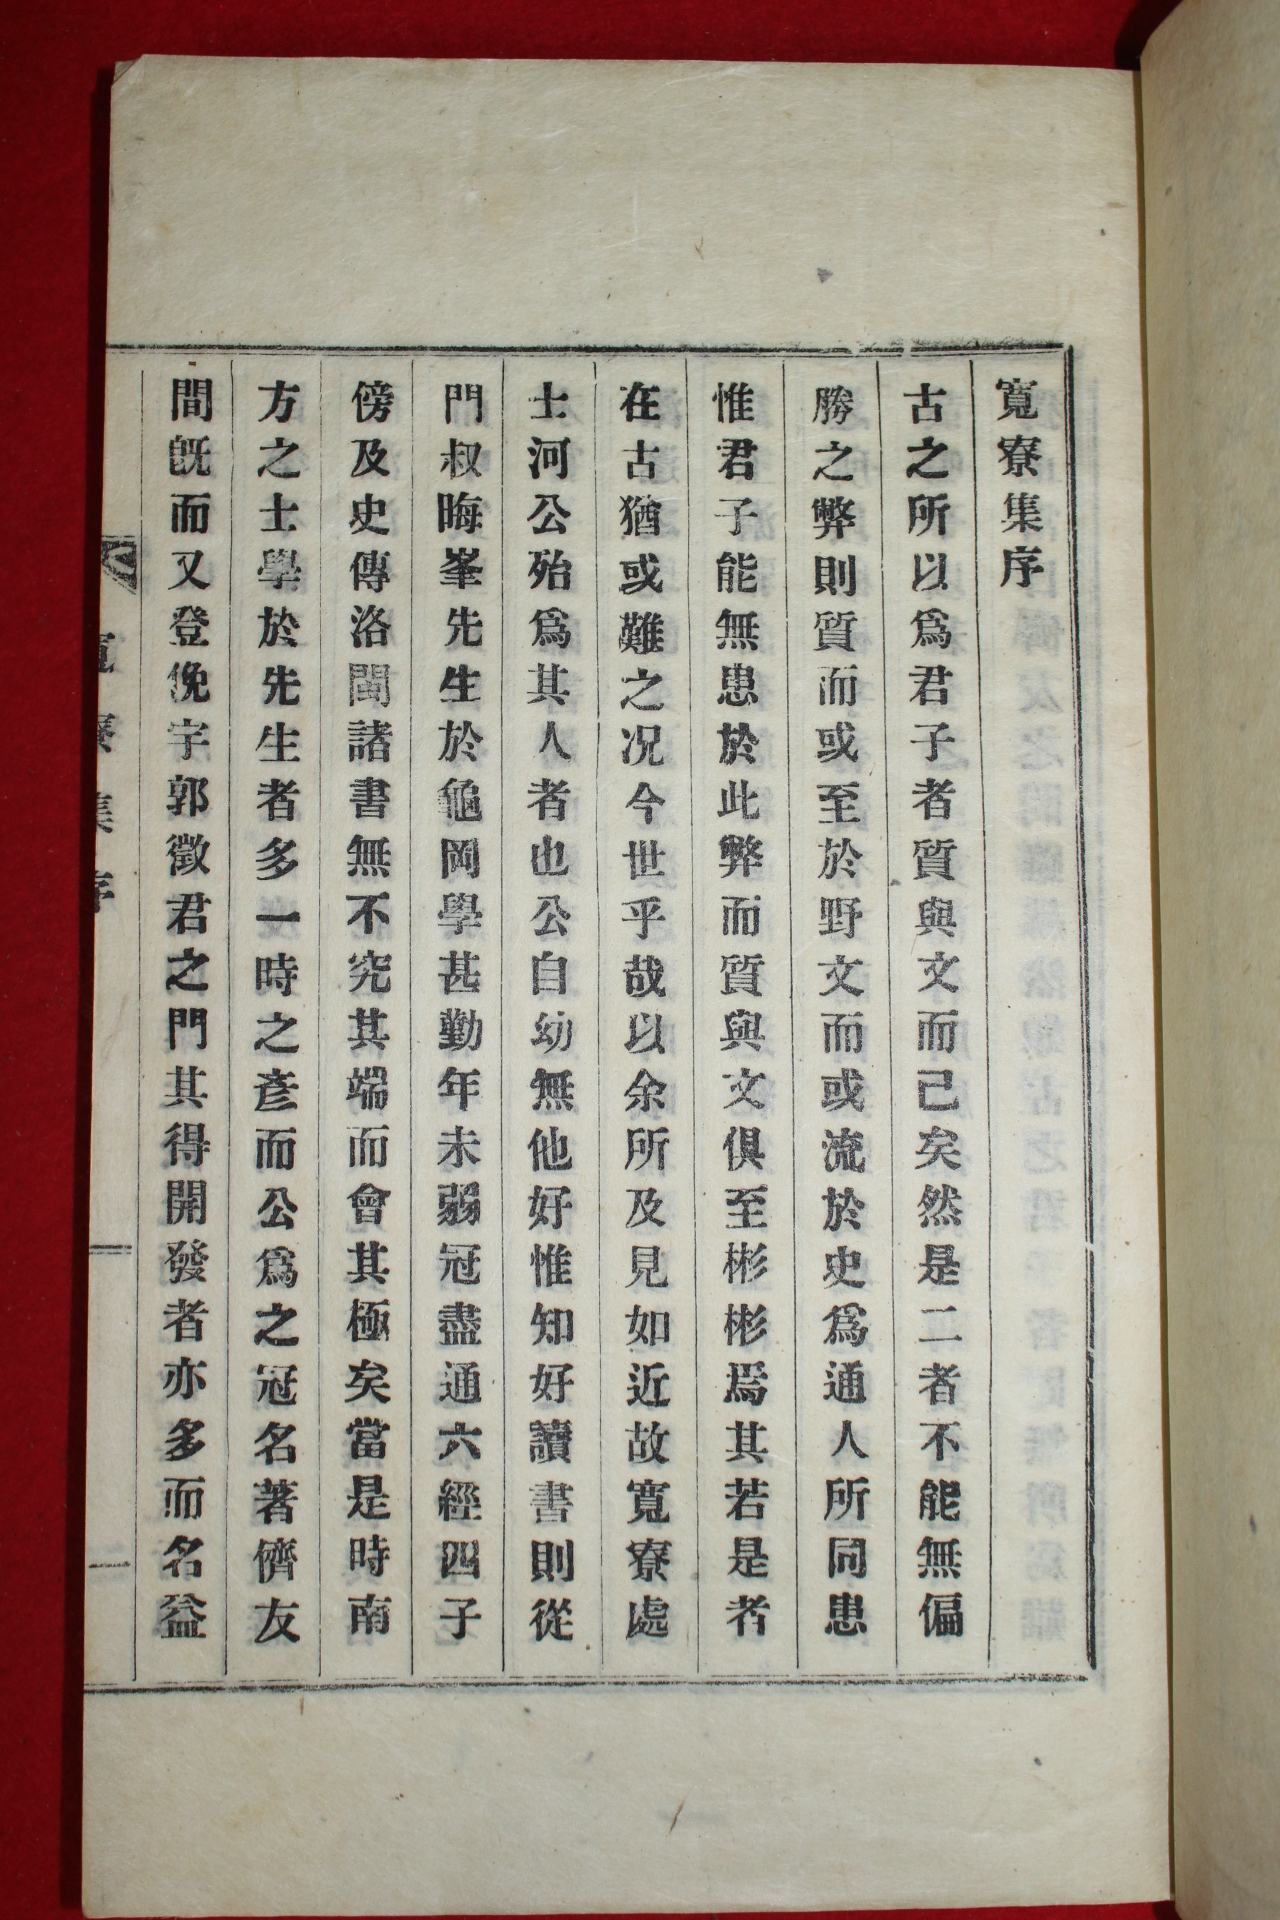 寬寮集序
古之所以爲君子者質與文而已矣然是二者不能無偏
勝之弊則質而或至於野文而或流於史爲通人所同患
惟君子能無患於此弊而質與文俱至彬彬焉其若是者
在古猶或難之况今世乎哉以余所及見如近故寬寮處
士河公殆爲其人者也公自幼無他好惟知好讀書則從
門叔晦峯先生於龜岡學甚勤年未弱冠盡通六經四子
傍及史傳洛閩諸書無不究其端而會其極矣當是時南
方之士學於先生者多一時之彥而公爲之冠名著儕友
間旣而又登俛宇郭徵君之門其得開發者亦多而名益
寬寮集序
二